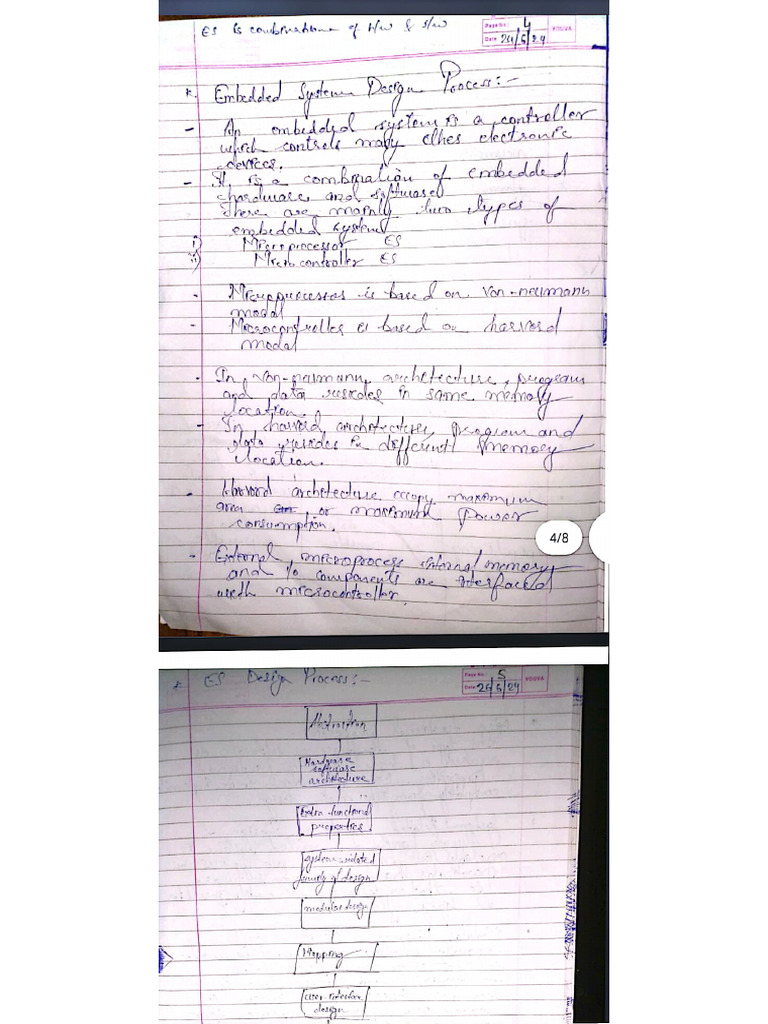 ES is combinations of H/W & S/W
Page No: 4
Date 24/5/24
YOUVA
Embedded System Design Process:-
- An embedded system is a controller
which controls many other electronic
devices.
- It is a combination of embedded
hardware and software
there are mainly two types of
embedded system
i) Microprocessor ES
ii) Microcontroller ES
- Microprocessor is based on von-neumann
modal
- Microcontroller is based on harvard
modal
- In von-neumann architecture, program
and data resides in same memory
location.
- In harvard architecture, program and
data resides in different memory
location.
- Harvard architecture occupy maximum
area or maximum power
consumption.
4/8
- External microprocess internal memory
and components are interfaced
with microcontroller.
ES Design Process:-
Page No: 5
Date 25/5/24
YOUVA
Abstraction
Hardware
software
architecture
Extra functional
properties
system related
family of design
modular design
Mapping
user interface
design